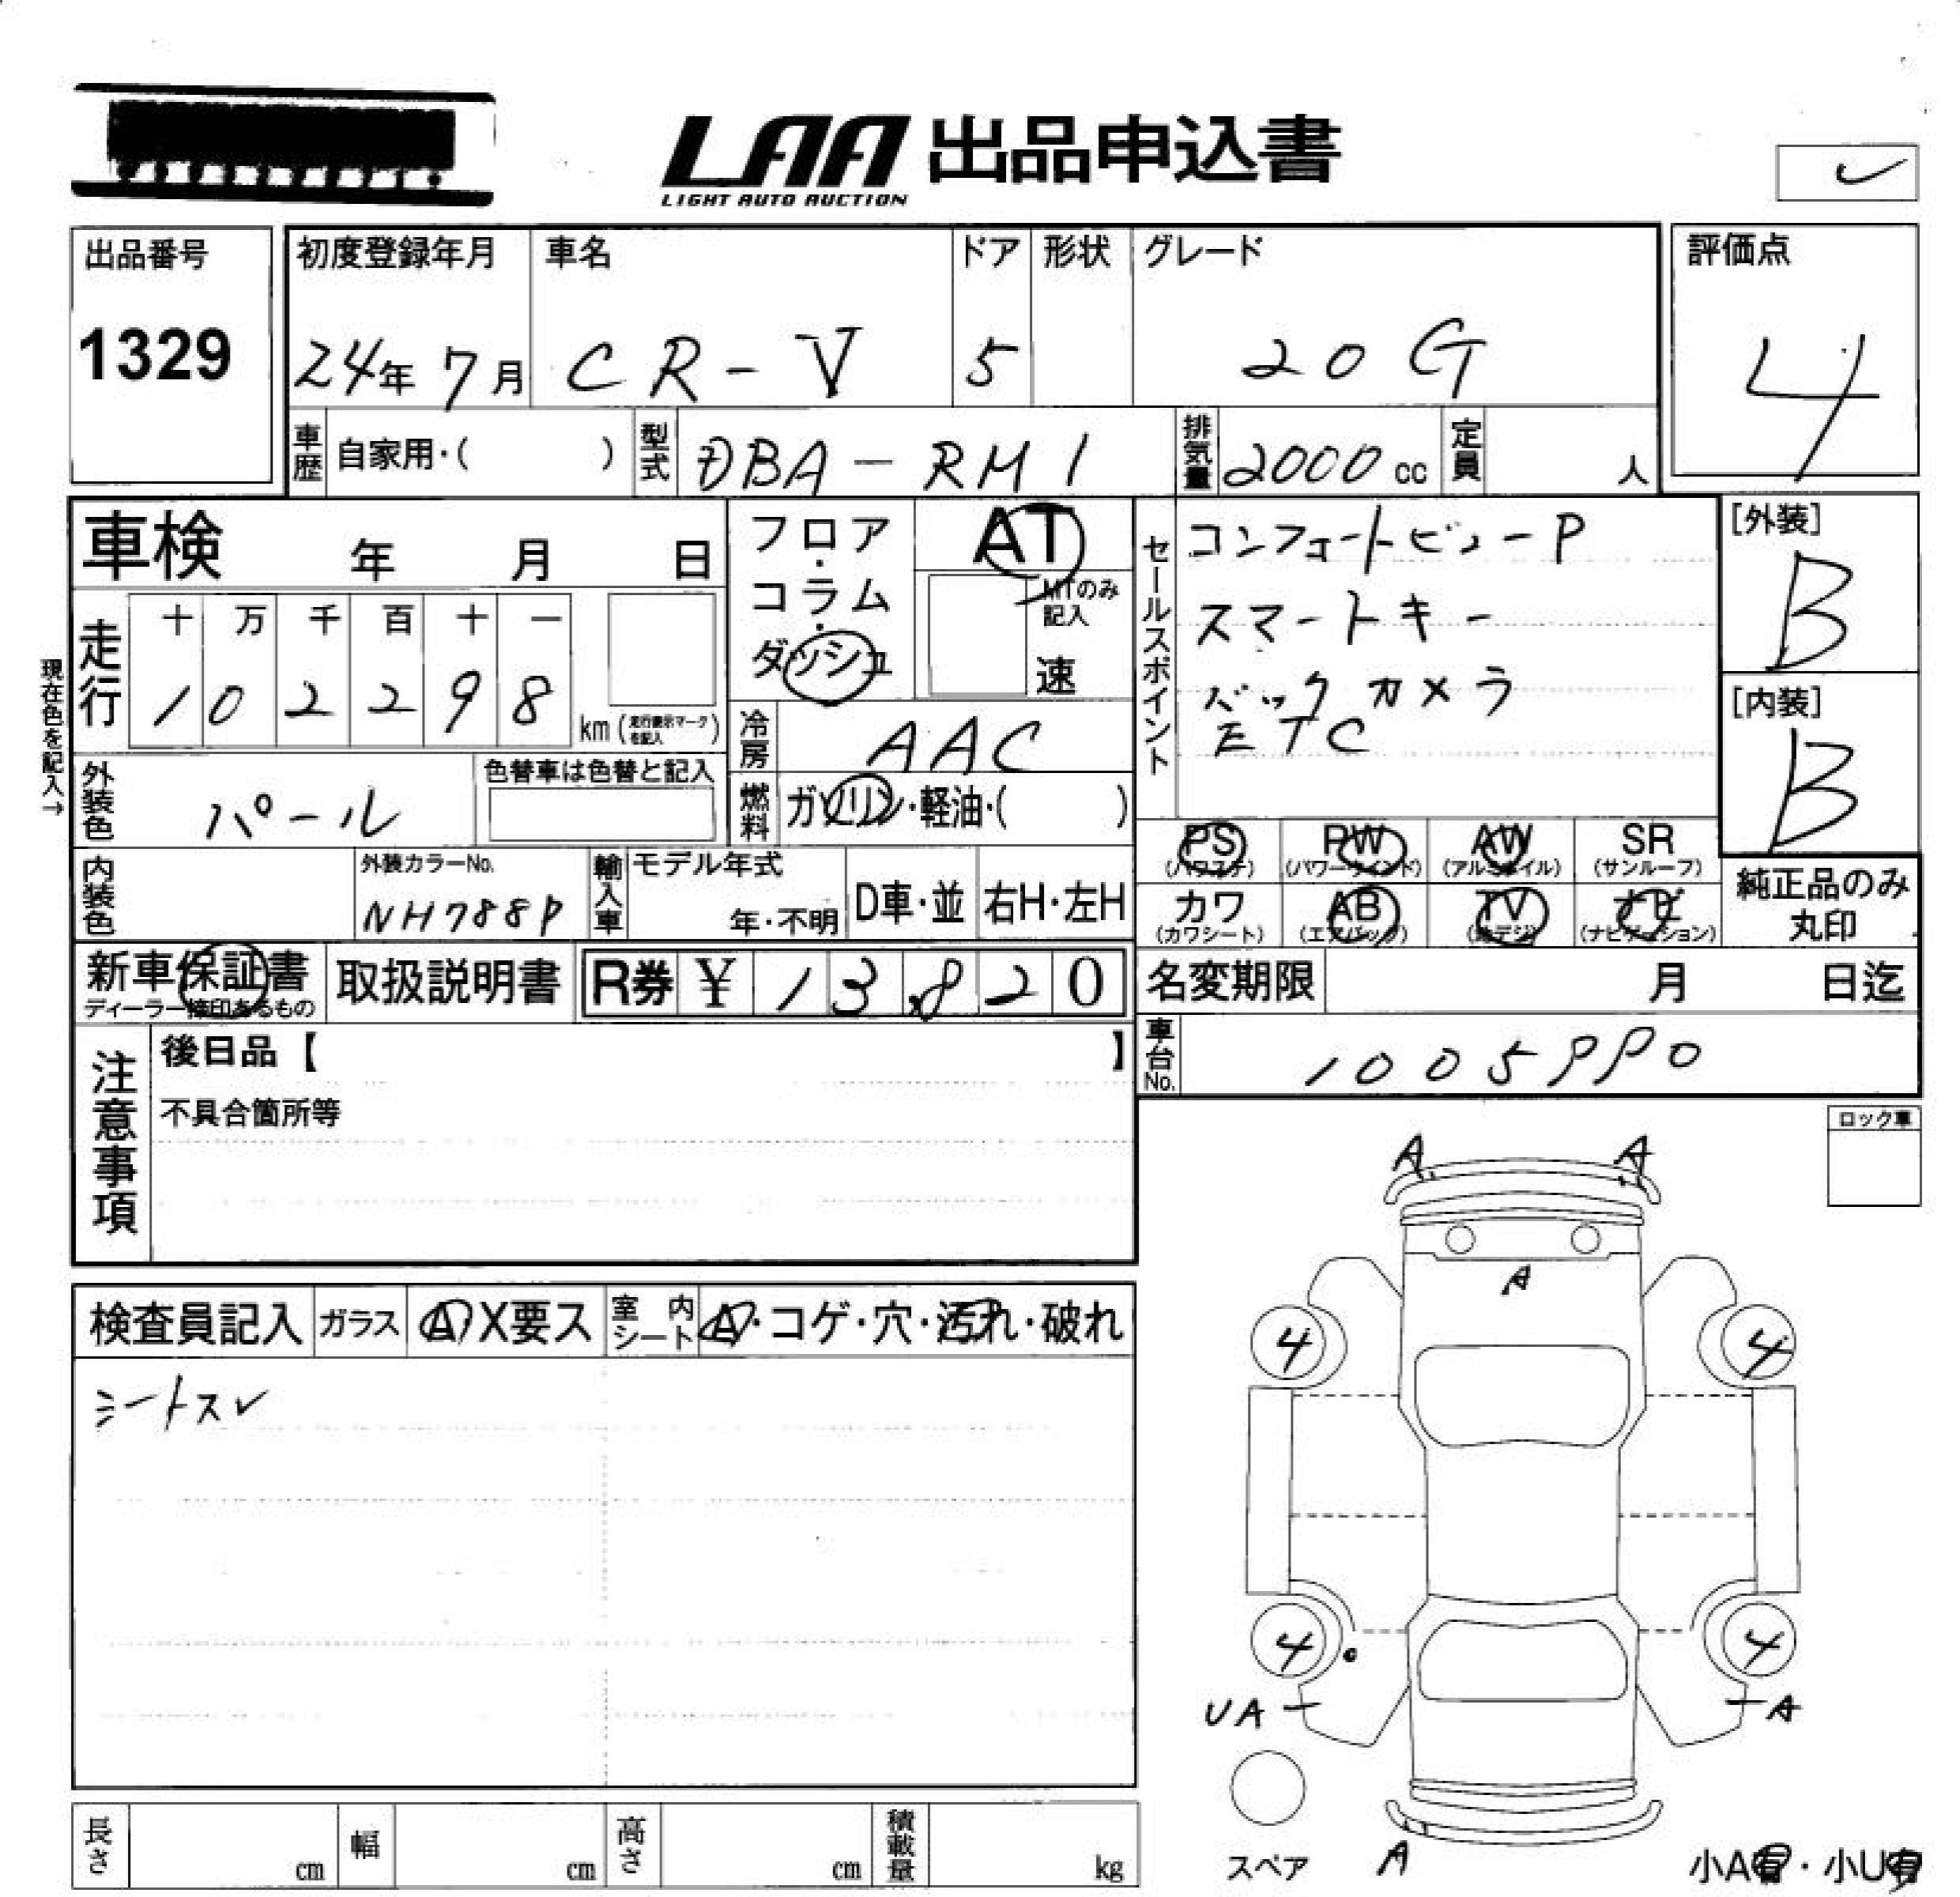 LAA 出品申込書
LIGHT AUTO AUCTION
出品番号
1329
初度登録年月 車名 ドア 形状 グレード 評価点
24年 7月 CR-V 5 20G 4
車歴 自家用・( ) 型式 DBA-RM1 排気量 2000cc 定員 人
車検 年 月 日
フロア・コラム・ダッシュ
AT
MTのみ記入
速
セールスポイント
コンフォートビューP
スマートキー
バックカメラ
ETC
[外装]
B
[内装]
B
現在色を記入→
走行 十 万 千 百 十 一
1 0 2 2 9 8 km (走行表示マークを記入)
冷房 AAC
外装色 パール 色替車は色替と記入
燃料 ガソリン・軽油・( )
PS (パワステ) PW (パワーウインド) AW (アルミホイル) SR (サンルーフ)
カワ (カワシート) AB (エアバッグ) TV (地デジ) ナビ (ナビゲーション)
純正品のみ丸印
内装色 外装カラーNo. NH788P 輸入車 モデル年式 年・不明 D車・並 右H・左H
新車保証書 取扱説明書 R券 ¥ 13,820
ディーラー捺印あるもの
名変期限 月 日迄
車台No.
注意事項
後日品【 】
不具合箇所等
ロック車
A A
A
4 4
4 4
UA A
スペア A
小A有・小U有
検査員記入 ガラス A・X要ス 室内シート A・コゲ・穴・汚れ・破れ
シートスレ
長さ cm 幅 cm 高さ cm 積載量 kg